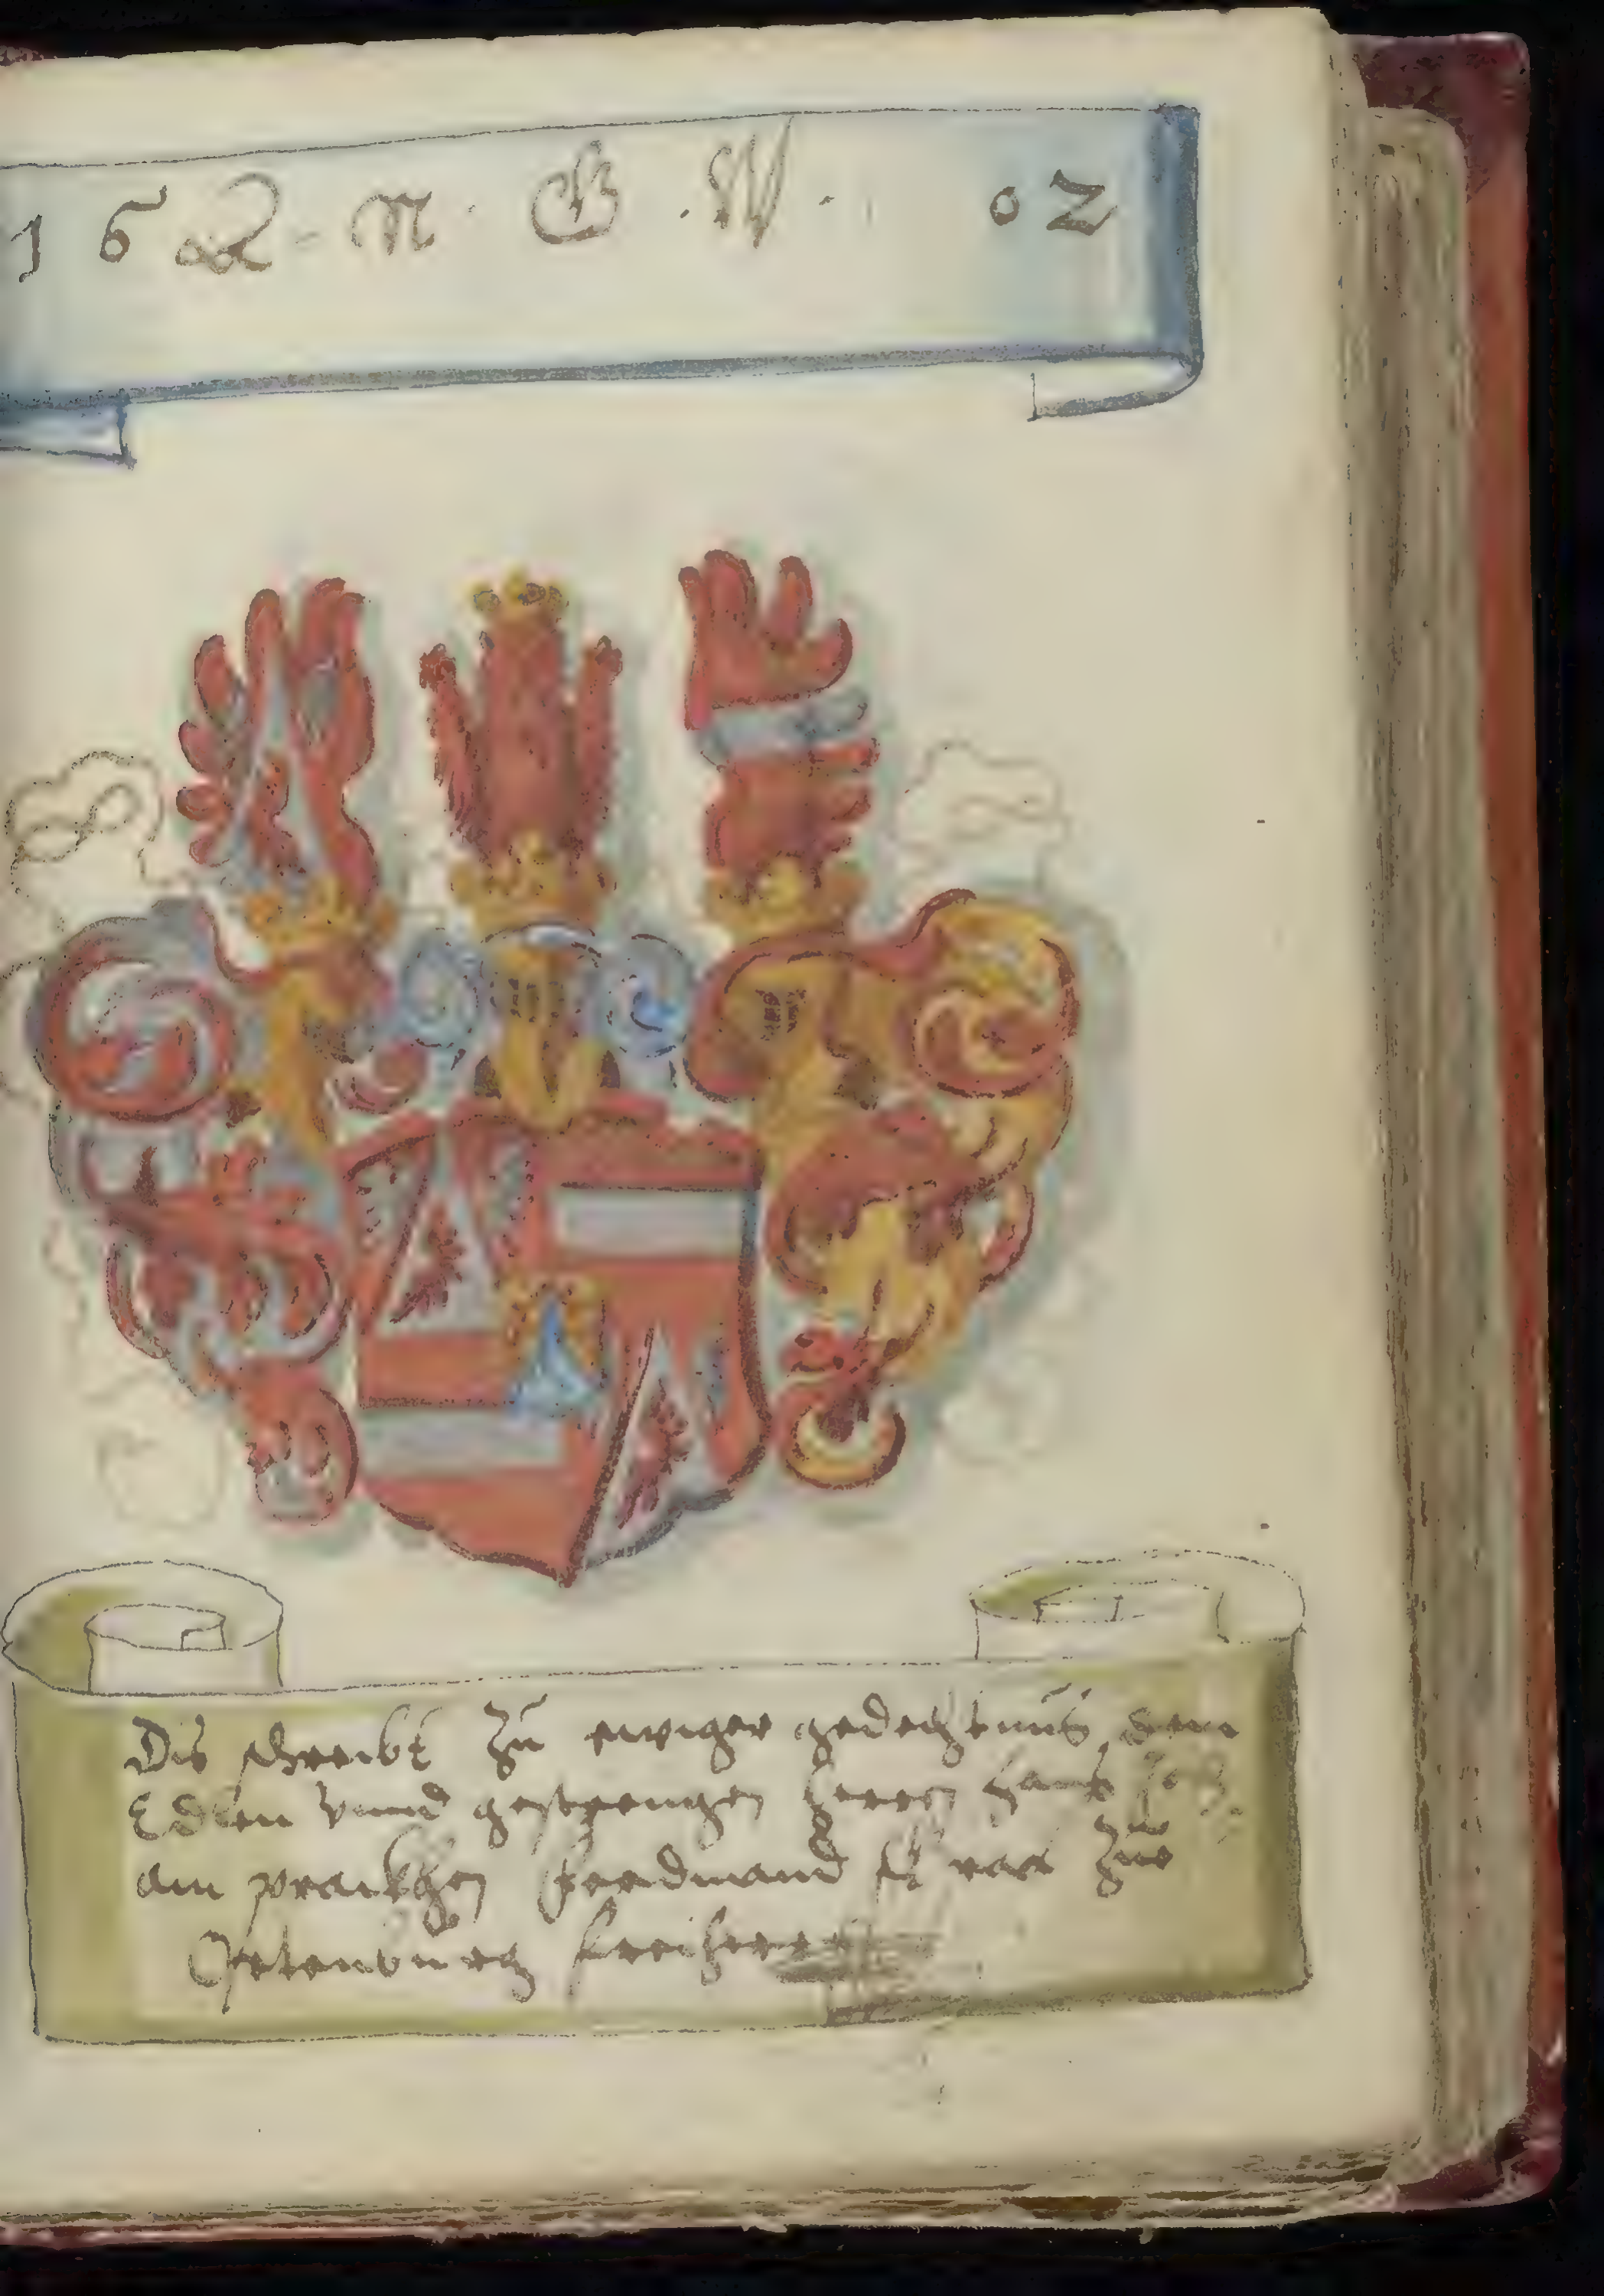 16 L · N · G · W · 02
Dis schreibt Zu ewiger gedechtnus dem
Edlen vnnd gestrengen herren Hans
am prankhen Ferdinand zue
Ortenburg freiherr